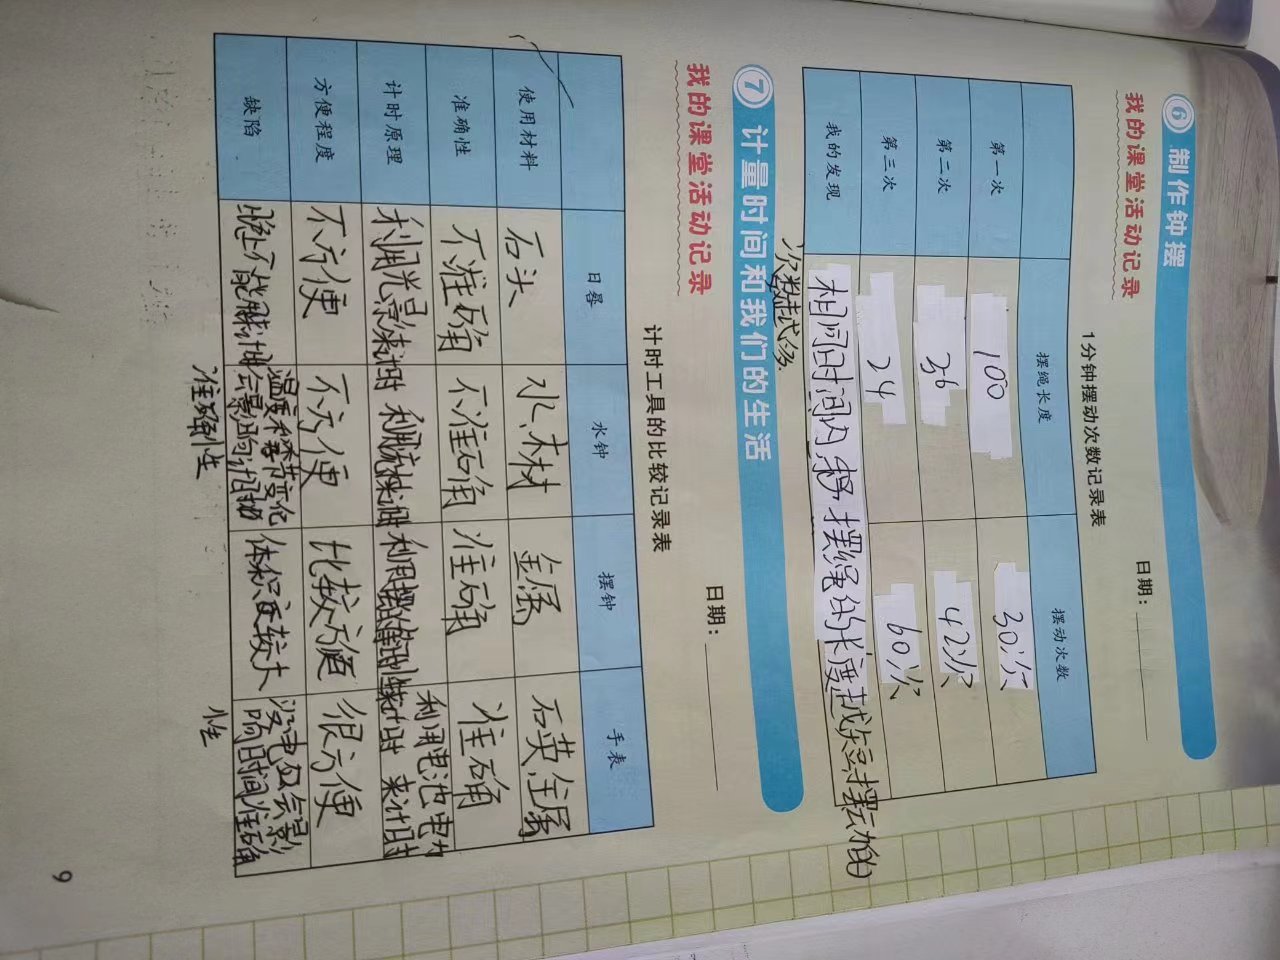 6 制作钟摆
我的课堂活动记录
日期:
1分钟摆动次数记录表
摆绳长度 摆动次数
第一次 100 30次
第二次 36 42次
第三次 24 60次
我的发现 相同时间内,摆绳的长度越短摆动的
次数越多.
7 计量时间和我们的生活
我的课堂活动记录
日期:
计时工具的比较记录表
日晷 水钟 摆钟 手表
使用材料 石头 水、木材 金属 石英金属
准确性 不准确 不准确 准确 准确
计时原理 利用光影来计时 利用 来计时 利用摆的 来计时 利用电池电力
来计时
方便程度 不方便 不方便 比较方便 很方便
缺陷 晚上不能 温度和季节变化 体积 较大 没电 会影
会影响计时的 响时间准确
准确性 性
9